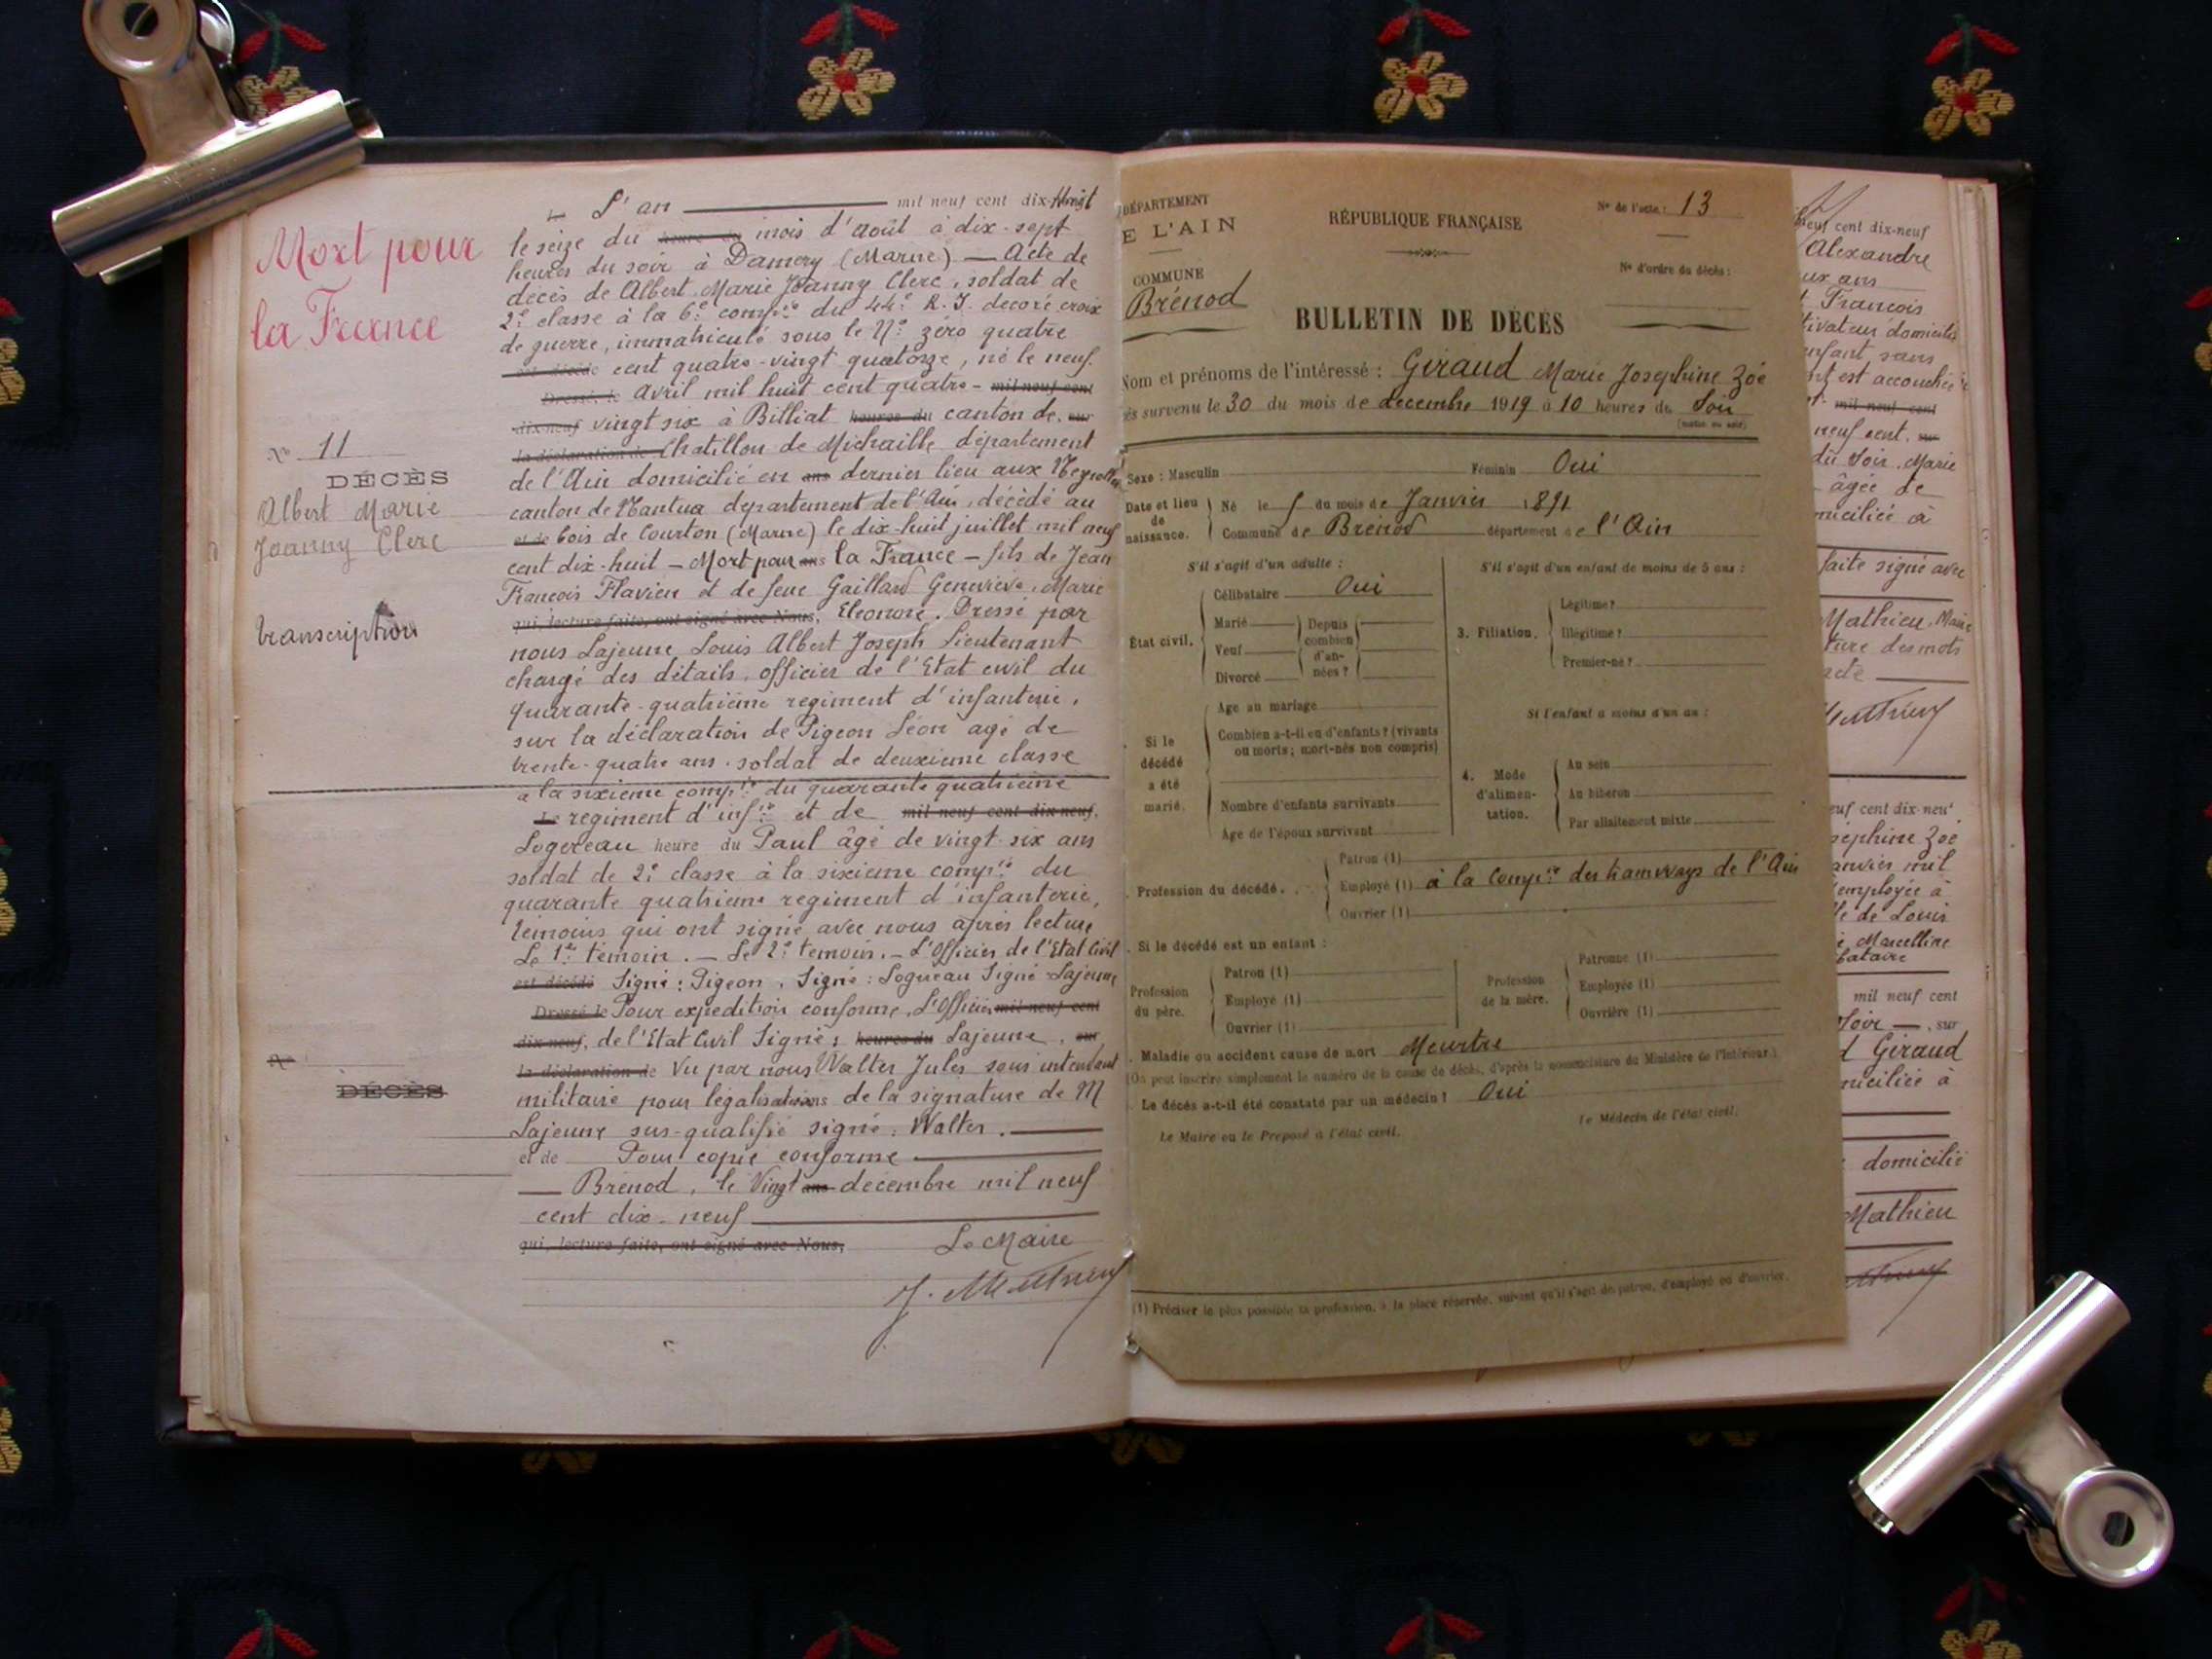 Mort pour
la France
N° 11
DÉCÈS
Albert Marie
Joanny Clerc
transcription
N°
DÉCÈS
L'an mil neuf cent dix-huit
le seize du mois d'Août à dix-sept
heures du soir à Damery (Marne) — Acte de
décès de Albert Marie Joanny Clerc, soldat de
2e classe à la 6e compie du 44e R. I. decoré croix
de guerre, immatriculé sous le N° zéro quatre
est décédé cent quatre-vingt quatorze, né le neuf
Dressé le Avril mil huit cent quatre- mil neuf cent
dix-neuf vingt six à Billiat heures du canton de sur
la déclaration de Chatillon de Michaille département
de l'Ain domicilié en ans dernier lieu aux Neyrolles
canton de Nantua departement de l'Ain, décédé au
et de bois de Courton (Marne) le dix-huit juillet mil neuf
cent dix-huit — Mort pour ans la France — fils de Jean
Francois Flavien et de feue Gaillard Geneviève, Marie
qui, lecture faite, ont signé avec Nous, Eleonore. Dressé par
nous Lajeune Louis Albert Joseph Lieutenant
chargé des détails, officier de l'Etat civil du
quarante-quatrième regiment d'infanterie,
sur la déclaration de Pigeon Léon agé de
trente-quatre ans, soldat de deuxieme classe
a la sixieme compie du quarante quatrieme
Le regiment d'infie et de mil neuf cent dix-neuf,
Logereau heure du Paul âgé de vingt-six ans
soldat de 2e classe à la sixieme compie du
quarante quatrieme regiment d'infanterie,
témoins qui ont signé avec nous après lecture
Le 1er témoin. — Le 2e temoin. — L'Officier de l'Etat Civil
est décédé Signé: Pigeon, Signé: Logereau Signé Lajeune
Dressé le Pour expedition conforme, L'Officier mil neuf cent
dix-neuf, de l'Etat Civil Signé: heures du Lajeune, sur
la déclaration de Vu par nous Walter Jules sous intendant
militaire pour légalisations de la signature de M
Lajeune sus-qualifié signé: Walter.
et de Pour copie conforme
— Brénod, le Vingt ans décembre mil neuf
cent dix-neuf
qui, lecture faite, ont signé avec Nous, Le Maire
DÉPARTEMENT
E L'AIN
RÉPUBLIQUE FRANÇAISE
N° de l'acte: 13
COMMUNE
Brénod
N° d'ordre du décès:
BULLETIN DE DÉCÈS
Nom et prénoms de l'intéressé : Giraud Marie Josephine Zoé
ès survenu le 30 du mois de decembre 1919 à 10 heures du Soir
(matin ou soir)
Sexe : Masculin Féminin Oui
Date et lieu de naissance. Né le 5 du mois de Janvier 1891
Commune de Brénod département de l'Ain
S'il s'agit d'un adulte :
S'il s'agit d'un enfant de moins de 5 ans :
État civil.
Célibataire Oui
Marié
Veuf
Divorcé
Depuis combien d'années ?
3. Filiation.
Légitime ?
Illégitime ?
Premier-né ?
Si le décédé a été marié.
Age au mariage
Combien a-t-il eu d'enfants ? (vivants
ou morts ; mort-nés non compris)
Nombre d'enfants survivants
Age de l'époux survivant
Si l'enfant a moins d'un an :
4. Mode d'alimentation.
Au sein
Au biberon
Par allaitement mixte
Profession du décédé.
Patron (1)
Employé (1) à la Compie des tramways de l'Ain
Ouvrier (1)
Si le décédé est un enfant :
Profession du père.
Patron (1)
Employé (1)
Ouvrier (1)
Profession de la mère.
Patronne (1)
Employée (1)
Ouvrière (1)
Maladie ou accident cause de mort Meurtre
(On peut inscrire simplement le numéro de la cause de décès, d'après la nomenclature du Ministère de l'Intérieur.)
Le décès a-t-il été constaté par un médecin ? Oui
Le Maire ou le Préposé à l'état civil.
Le Médecin de l'état civil.
(1) Préciser le plus possible la profession, à la place réservée, suivant qu'il s'agit de patron, d'employé ou d'ouvrier.
neuf cent dix-neuf
Alexandre
ux ans
François
tivateur domicilié
enfant sans
nt est accouchée
mil neuf cent
neuf cent, sur
du soir, Marie
âgée de
micilié à
faite signé avec
Mathieu, Maire
ture des mots
acte
euf cent dix-neuf
sephine Zoé
anvier mil
employée à
le de Louis
Marcelline
bataire
mil neuf cent
soir —, sur
Giraud
micilié à
domicilié
Mathieu